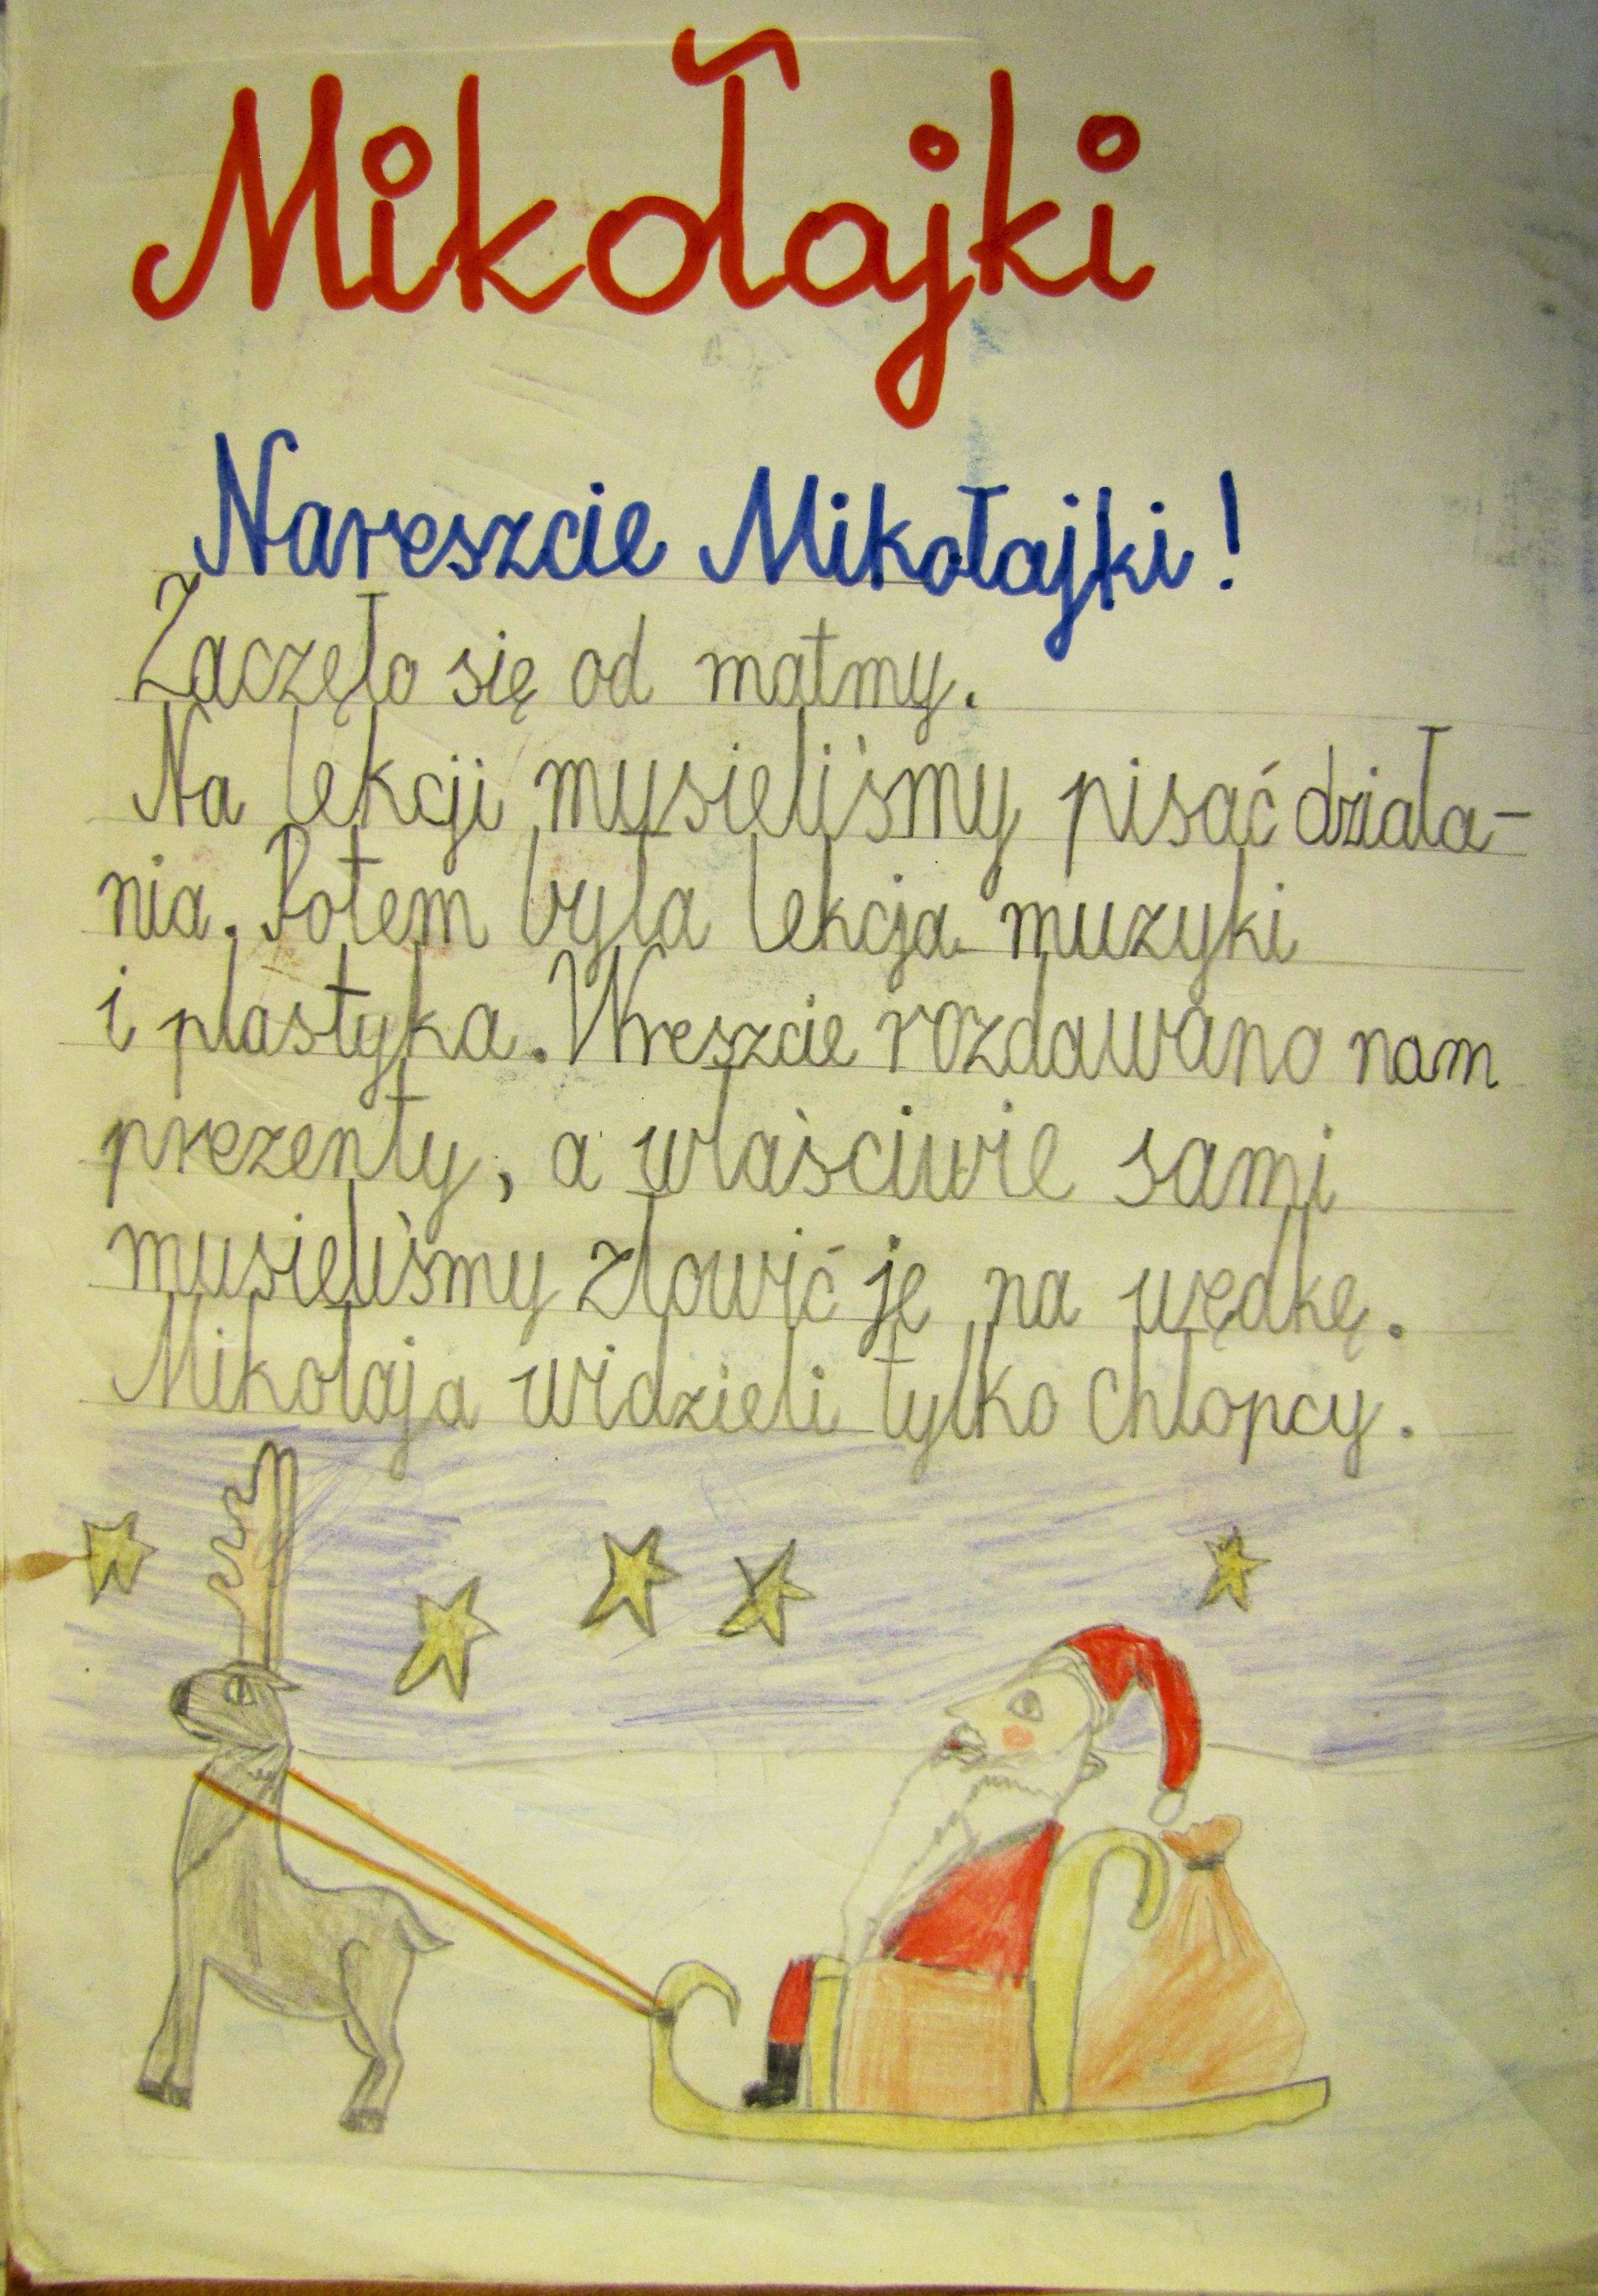 Mikołajki
Nareszcie Mikołajki!
Zaczęło się od matmy.
Na lekcji musieliśmy pisać działa-
nia. Potem była lekcja muzyki
i plastyka. Wreszcie rozdawano nam
prezenty, a właściwie sami
musieliśmy złowić je na wędkę.
Mikołaja widzieli tylko chłopcy.